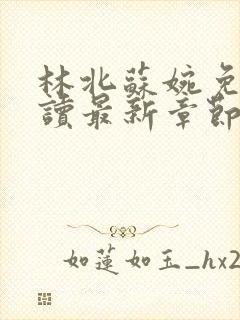 林北蘇婉免
讀最新章節
如蓮如玉_hx2